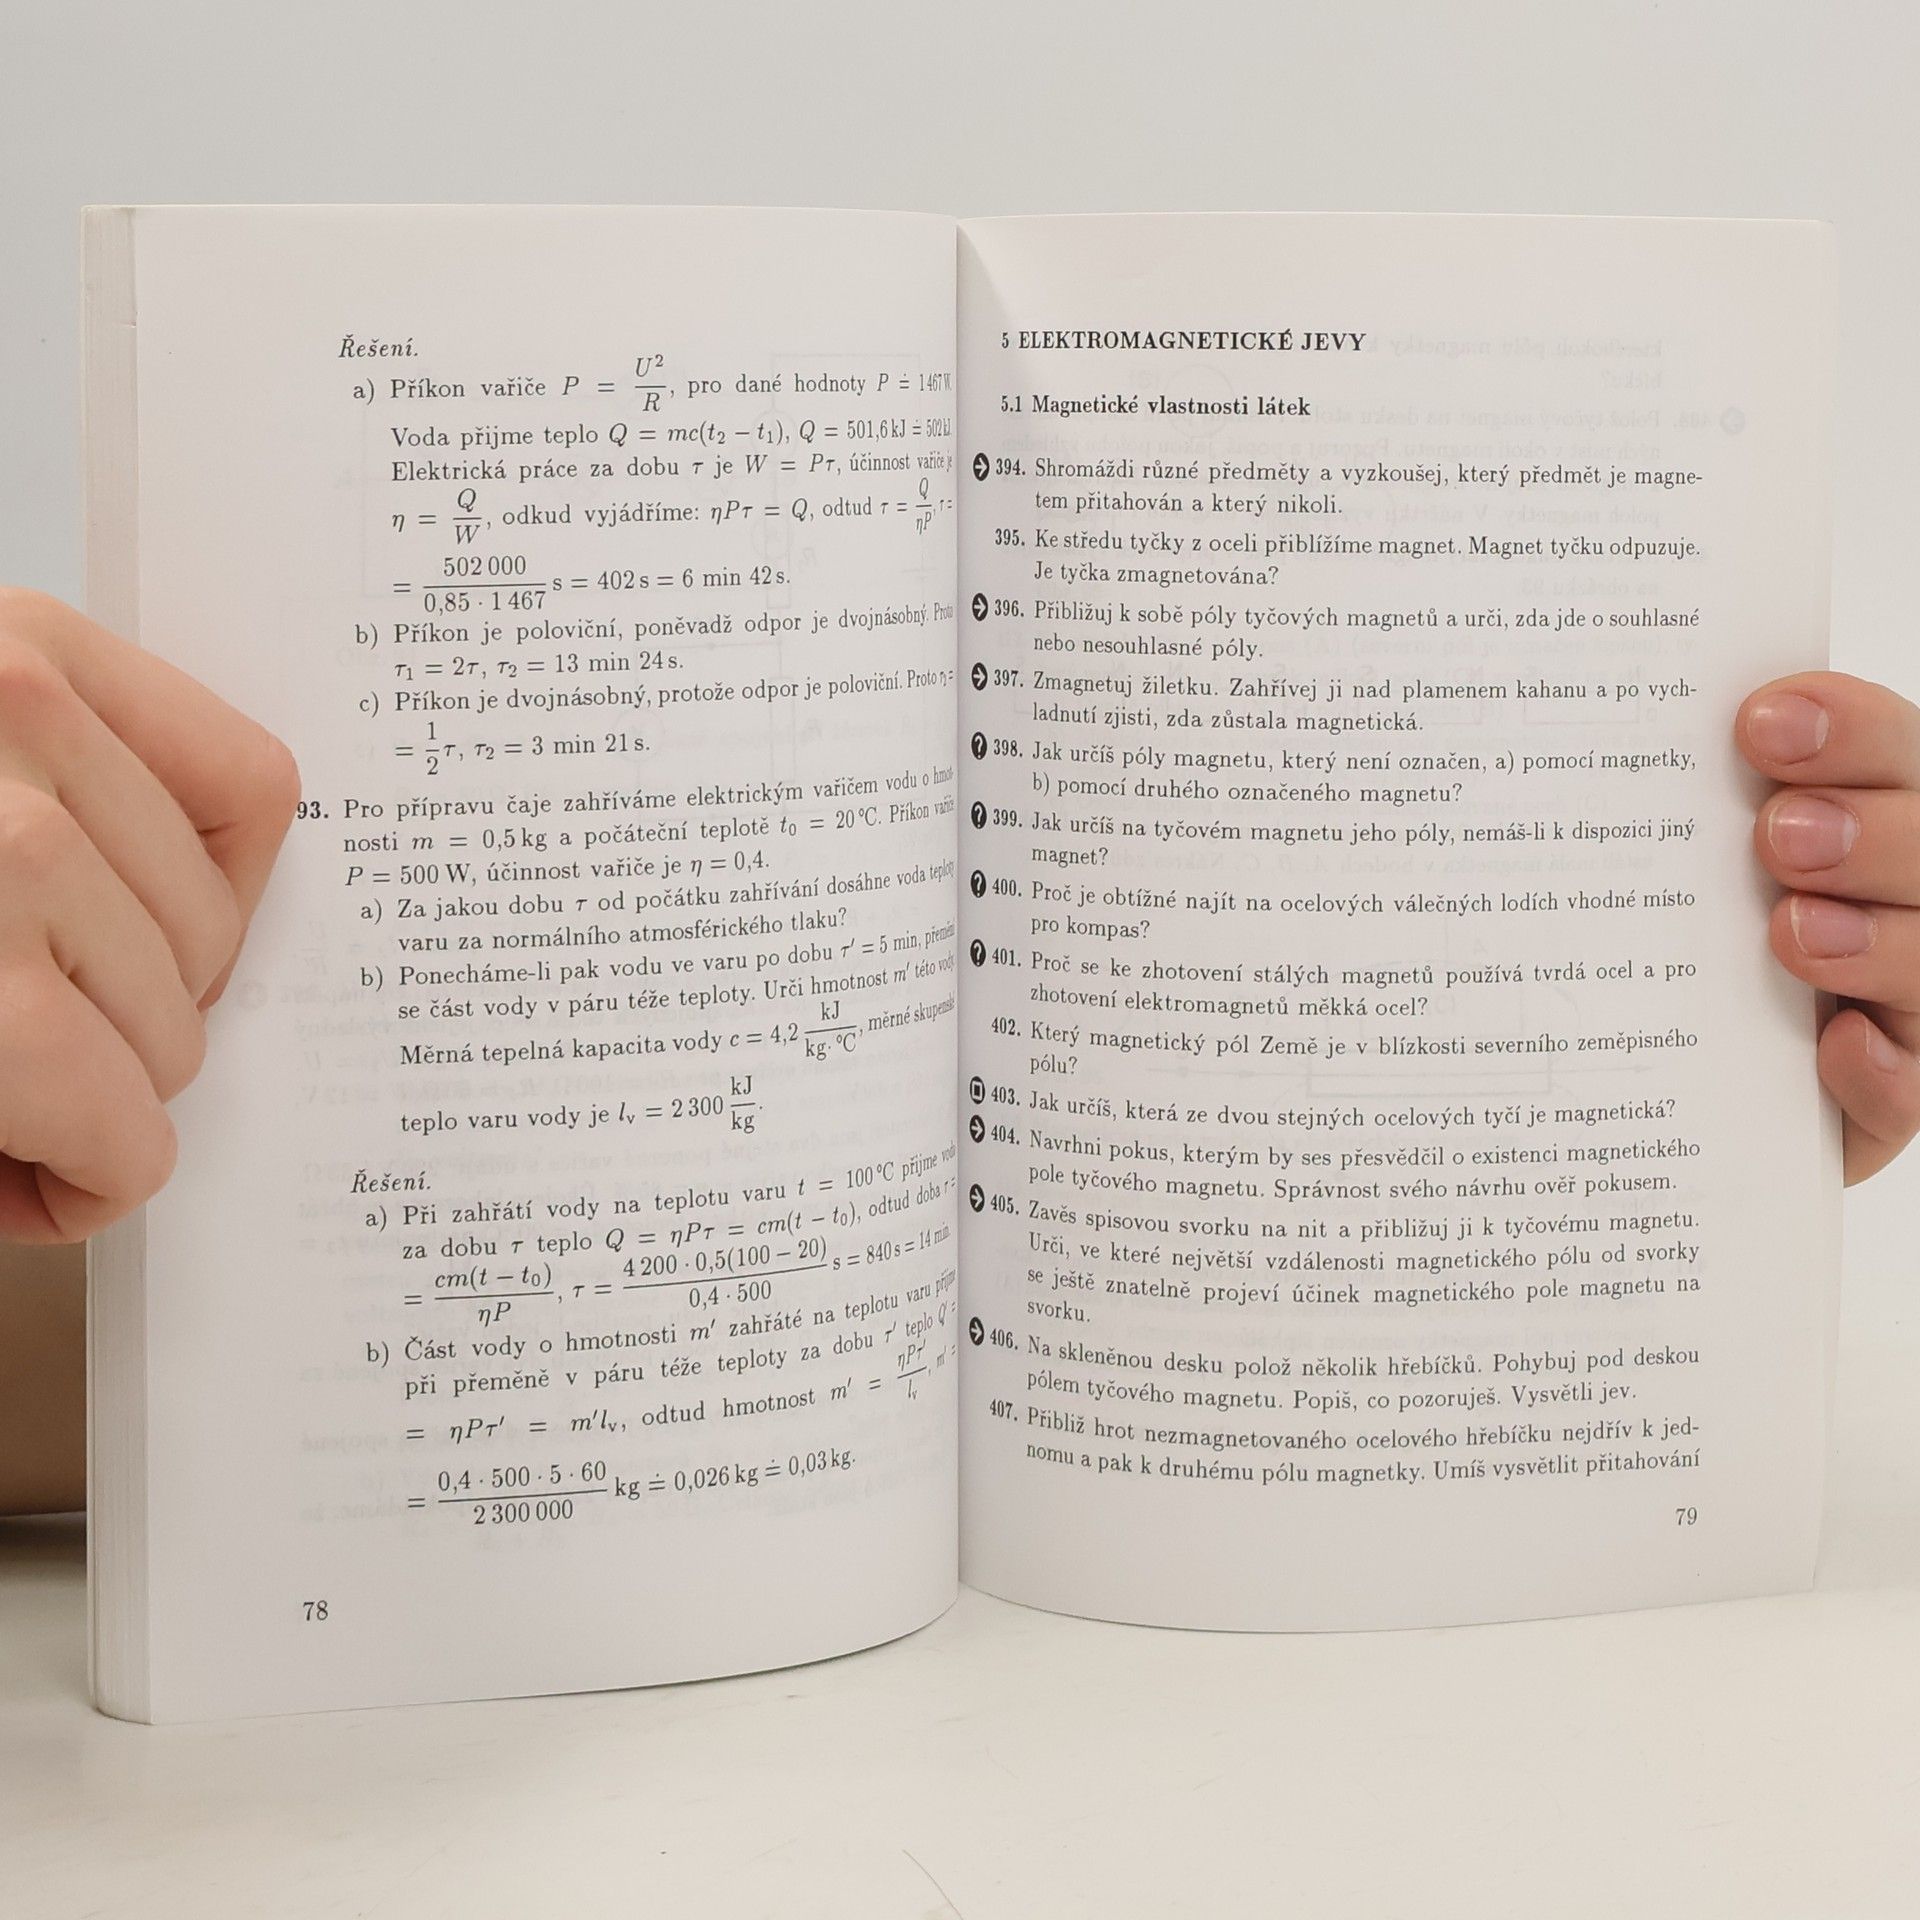 Řešení.
a) Příkon vařiče P = U²/R, pro dané hodnoty P ≐ 1 467 W.
Voda přijme teplo Q = mc(t₂ − t₁), Q = 501,6 kJ ≐ 502 kJ.
Elektrická práce za dobu τ je W = Pτ, účinnost vařiče je
η = Q/W, odkud vyjádříme: ηPτ = Q, odtud τ = Q/ηP, τ =
= 502 000/0,85 · 1 467 s = 402 s = 6 min 42 s.
b) Příkon je poloviční, poněvadž odpor je dvojnásobný. Proto
τ₁ = 2τ, τ₂ = 13 min 24 s.
c) Příkon je dvojnásobný, protože odpor je poloviční. Proto τ₂ =
= 1/2 τ, τ₂ = 3 min 21 s.
93. Pro přípravu čaje zahříváme elektrickým vařičem vodu o hmot-
nosti m = 0,5 kg a počáteční teplotě t₀ = 20 °C. Příkon vařiče
P = 500 W, účinnost vařiče je η = 0,4.
a) Za jakou dobu τ od počátku zahřívání dosáhne voda teploty
varu za normálního atmosférického tlaku?
b) Ponecháme-li pak vodu ve varu po dobu τ′ = 5 min, přemění
se část vody v páru téže teploty. Urči hmotnost m′ této vody.
Měrná tepelná kapacita vody c = 4,2 kJ/kg · °C, měrné skupenské
teplo varu vody je lᵥ = 2 300 kJ/kg.
Řešení.
a) Při zahřátí vody na teplotu varu t = 100 °C přijme voda
za dobu τ teplo Q = ηPτ = cm(t − t₀), odtud doba τ =
= cm(t − t₀)/ηP, τ = 4 200 · 0,5(100 − 20)/0,4 · 500 s = 840 s = 14 min.
b) Část vody o hmotnosti m′ zahřáté na teplotu varu přijme
při přeměně v páru téže teploty za dobu τ′ teplo Q′ =
= ηPτ′ = m′lᵥ, odtud hmotnost m′ = ηPτ′/lᵥ, m′ =
= 0,4 · 500 · 5 · 60/2 300 000 kg ≐ 0,026 kg ≐ 0,03 kg.
78
5 ELEKTROMAGNETICKÉ JEVY
5.1 Magnetické vlastnosti látek
394. Shromáždi různé předměty a vyzkoušej, který předmět je magne-
tem přitahován a který nikoli.
395. Ke středu tyčky z oceli přiblížíme magnet. Magnet tyčku odpuzuje.
Je tyčka zmagnetována?
396. Přibližuj k sobě póly tyčových magnetů a urči, zda jde o souhlasné
nebo nesouhlasné póly.
397. Zmagnetuj žiletku. Zahřívej ji nad plamenem kahanu a po vych-
ladnutí zjisti, zda zůstala magnetická.
398. Jak určíš póly magnetu, který není označen, a) pomocí magnetky,
b) pomocí druhého označeného magnetu?
399. Jak určíš na tyčovém magnetu jeho póly, nemáš-li k dispozici jiný
magnet?
400. Proč je obtížné najít na ocelových válečných lodích vhodné místo
pro kompas?
401. Proč se ke zhotovení stálých magnetů používá tvrdá ocel a pro
zhotovení elektromagnetů měkká ocel?
402. Který magnetický pól Země je v blízkosti severního zeměpisného
pólu?
403. Jak určíš, která ze dvou stejných ocelových tyčí je magnetická?
404. Navrhni pokus, kterým by ses přesvědčil o existenci magnetického
pole tyčového magnetu. Správnost svého návrhu ověř pokusem.
405. Zavěs spisovou svorku na nit a přibližuj ji k tyčovému magnetu.
Urči, ve které největší vzdálenosti magnetického pólu od svorky
se ještě znatelně projeví účinek magnetického pole magnetu na
svorku.
406. Na skleněnou desku polož několik hřebíčků. Pohybuj pod deskou
pólem tyčového magnetu. Popiš, co pozoruješ. Vysvětli jev.
407. Přibliž hrot nezmagnetovaného ocelového hřebíčku nejdřív k jed-
nomu a pak k druhému pólu magnetky. Umíš vysvětlit přitahování
79